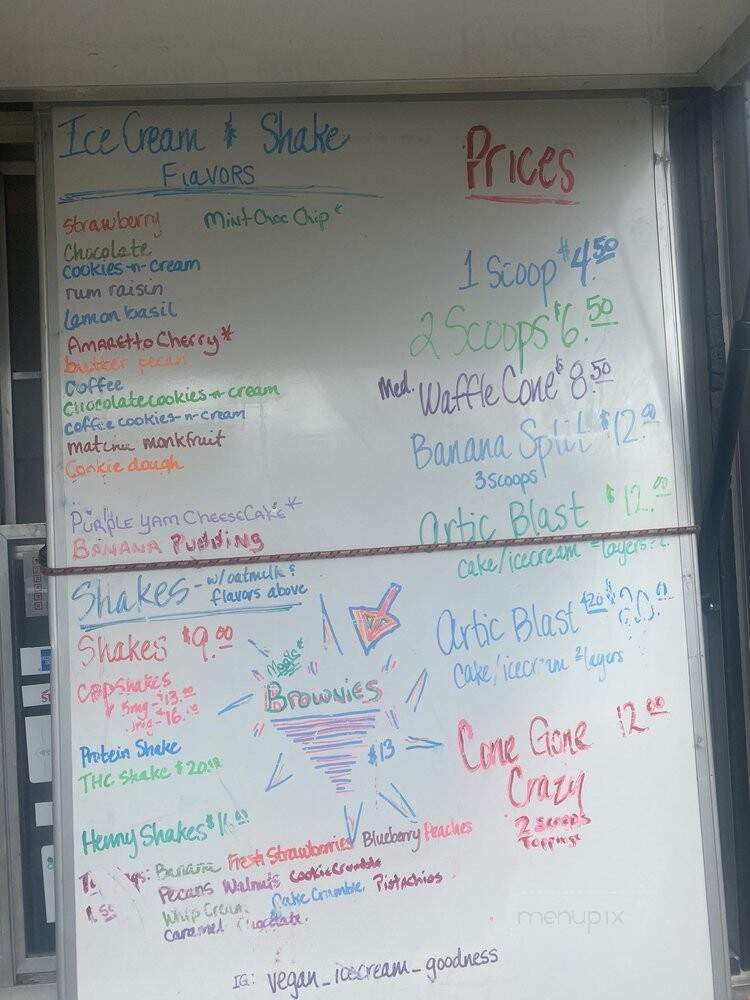 Ice Cream & Shake
Flavors
Strawberry Mint Choc Chip*
Chocolate
cookies-n-cream
rum raisin
lemon basil
Amaretto Cherry*
butter pecan
Coffee
Chocolate cookies-n-cream
coffee cookies-n-cream
matcha monkfruit
Cookie dough
Purple Yam CheeseCake*
Banana Pudding
Shakes - w/oatmilk &
flavors above
Shakes $9.00
CBD Shakes
5mg - $13.00
mg - 16.00
Protein Shake
THC Shake $20.00
Henny Shakes $16.00
Magic*
Brownies
$13
Prices
1 Scoop $4.50
2 Scoops $6.50
Med. Waffle Cone $8.50
Banana Split $12.00
3 scoops
Artic Blast $12.00
cake/icecream =layers=
Artic Blast $20.00
cake/icecream 2 layers
Cone Gone 12.00
Crazy
2 scoops
toppings
Banana Fresh Strawberries Blueberry Peaches
Pecans Walnuts Cookie Crumble
Whip Cream Cake Crumble Pistachios
Caramel Chocolate
IG: vegan_icecream_goodness
menupix